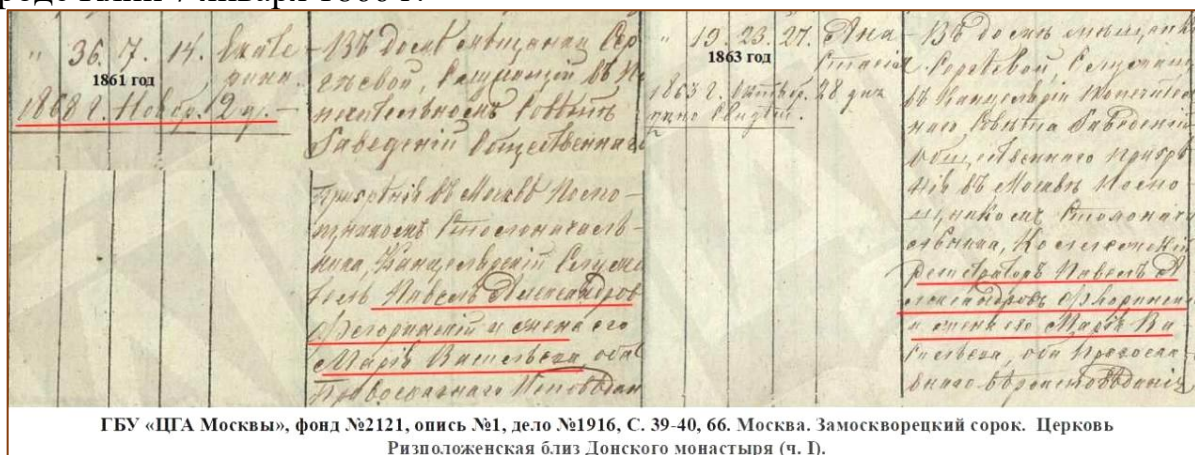 " 36. 7. 14. Екате
рина.
1861 год
1868 г. Ноябр. 2 д. –
– Въ домѣ мѣщанки Сер
гѣевой, Служащій въ По
печительномъ Совѣтѣ
Заведеній Общественнаго
Призрѣнія въ Москвѣ Помо
щникомъ Столоначаль-
ника, Канцелярскій Служи
тель Павелъ Александров
Флоринскій и жена его
Марія Васильева, оба
Православнаго Исповѣдан
" 19. 23. 27. Ана
стасія
1863 год
1863 г. Октябр. 28 дня
– Въ домѣ мѣщанки
Сергѣевой, Служащ
въ Канцеляріи Попечитель
наго Совѣта Заведеній
Общественнаго Призрѣ
нія въ Москвѣ Помо
щникомъ Столонач
Коллежскій
Регистраторъ Павелъ А
лександровъ Флоринскі
и жена его Марія Ва
сильева, оба Правосла
внаго вѣроисповѣданія
ГБУ «ЦГА Москвы», фонд №2121, опись №1, дело №1916, С. 39-40, 66. Москва. Замоскворецкий сорок. Церковь
Ризположенская близ Донского монастыря (ч. I).